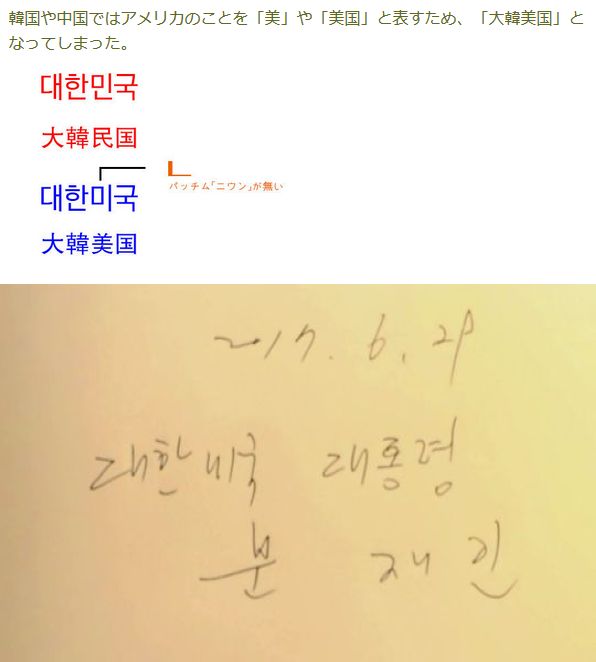 韓国や中国ではアメリカのことを「美」や「美国」と表すため、「大韓美国」と
なってしまった。
대한민국
大韓民国
ㄴ
パッチム「ニウン」が無い
대한미국
大韓美国
2017. 6. 29
대한미국 대통령
문 재 인